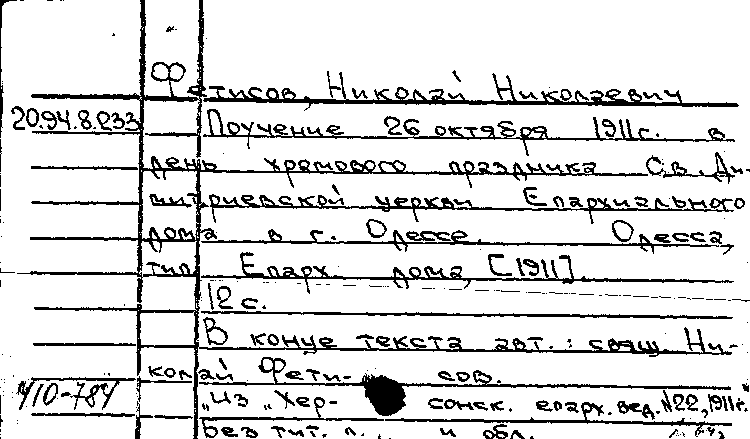 Фетисов, Николай Николаевич
20.94.8.233 Поучение 26 октября 1911г. в
день храмового праздника Св. Ди-
митриевской церкви Епархиального
дома в г. Одессе. Одесса,
тип. Епарх. дома, [1911].
12 с.
В конце текста авт.: свящ. Ни-
колай Фети- сов.
410-784 "Из "Хер- сонск. епарх. вед. №22, 1911г."
Без тит. л. и обл.